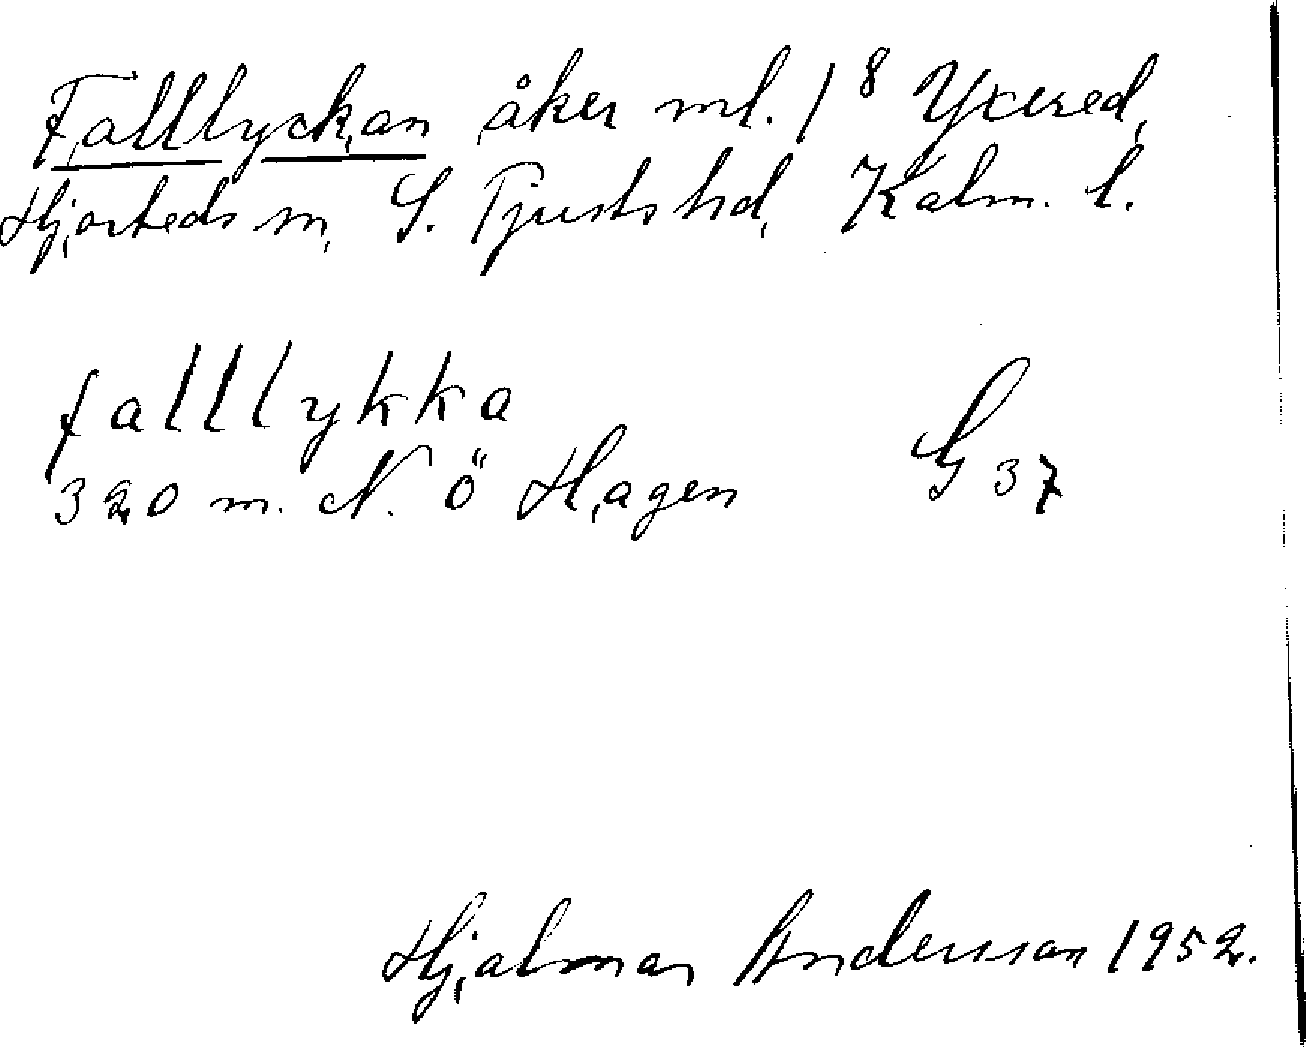 Falllyckan åker ml. 1⁸ Yxered,
Hjorteds sn, S. Tjusts hd, Kalm. l.
falllykka
320 m. N. ö Hagen G 37
Hjalmar Andersson 1952.